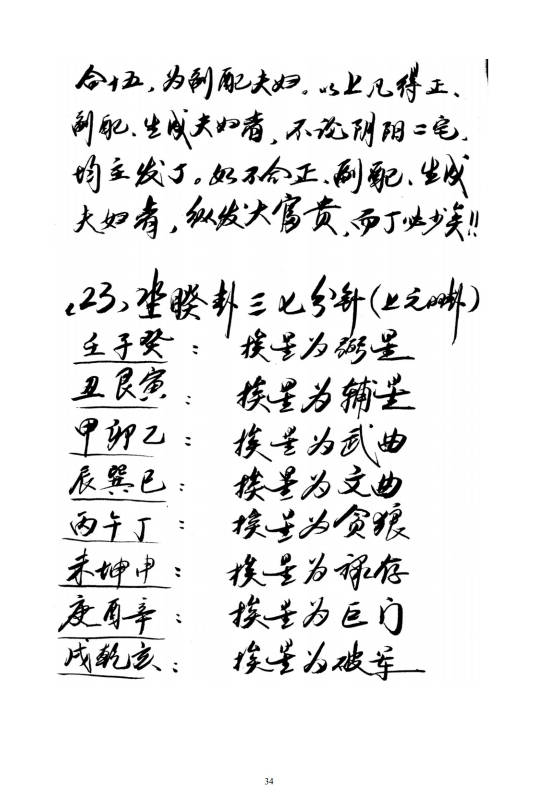 合十五，为副配夫妇。以上凡得正、
副配、生成夫妇者，不论阴阳二宅，
均主发丁。如不合正、副配、生成
夫妇者，纵发大富贵，而丁必少矣!!
23、坐睽卦三七分针(上元时卦)
壬子癸：挨星为弼星
丑艮寅：挨星为辅星
甲卯乙：挨星为武曲
辰巽巳：挨星为文曲
丙午丁：挨星为贪狼
未坤申：挨星为禄存
庚酉辛：挨星为巨门
戌乾亥：挨星为破军
34